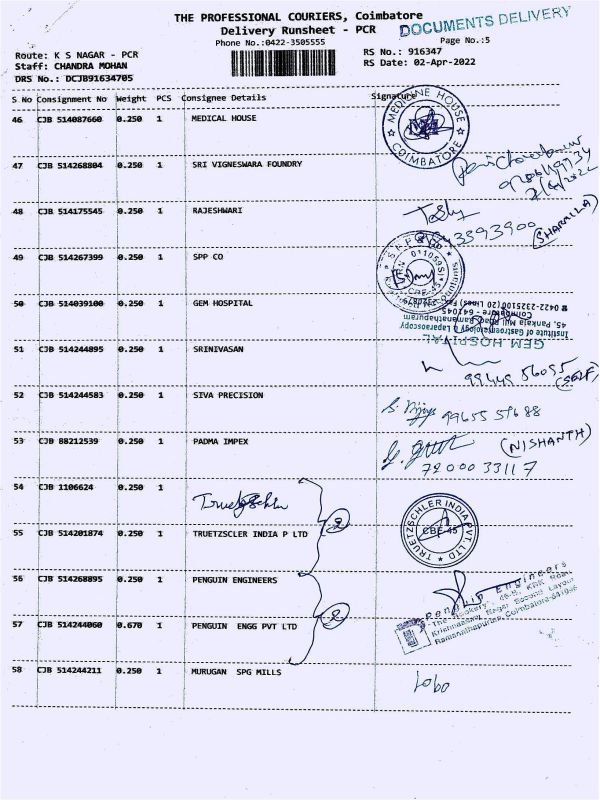 THE PROFESSIONAL COURIERS, Coimbatore
DOCUMENTS DELIVERY
Delivery Runsheet - PCR
Phone No.:0422-3505555
Page No.:5
Route: K S NAGAR - PCR
RS No.: 916347
Staff: CHANDRA MOHAN
RS Date: 02-Apr-2022
DRS No.: DCJB91634705
S No Consignment No Weight PCS Consignee Details Signature
46 CJB 514087660 0.250 1 MEDICAL HOUSE
MEDICINE HOUSE
COIMBATORE
47 CJB 514268804 0.250 1 SRI VIGNESWARA FOUNDRY
48 CJB 514175545 0.250 1 RAJESHWARI
(SHARMILA)
49 CJB 514267399 0.250 1 SPP CO
50 CJB 514039100 0.250 1 GEM HOSPITAL
GEM HOSPITAL
Institute of Gastroenterology & Laparoscopy
45, Pankaja Mill Road, Ramanathapuram
Coimbatore - 641045
0422-2325100 (20 Lines)
51 CJB 514244895 0.250 1 SRINIVASAN
99449 56055 (SELF)
52 CJB 514244583 0.250 1 SIVA PRECISION
99655 59688
53 CJB 88212539 0.250 1 PADMA IMPEX
(NISHANTH)
72000 33117
54 CJB 1106624 0.250 1 Truetzschler
2
TRUETZSCHLER INDIA PVT. LTD
CBE-45
55 CJB 514201874 0.250 1 TRUETZSCLER INDIA P LTD
56 CJB 514268895 0.250 1 PENGUIN ENGINEERS
2
Penguin Engineers
"The Rookery", 46-B, KRK Road
Krishnaswamy Nagar Second Layout
Ramanathapuram, Coimbatore-641045
57 CJB 514244060 0.670 1 PENGUIN ENGG PVT LTD
58 CJB 514244211 0.250 1 MURUGAN SPG MILLS